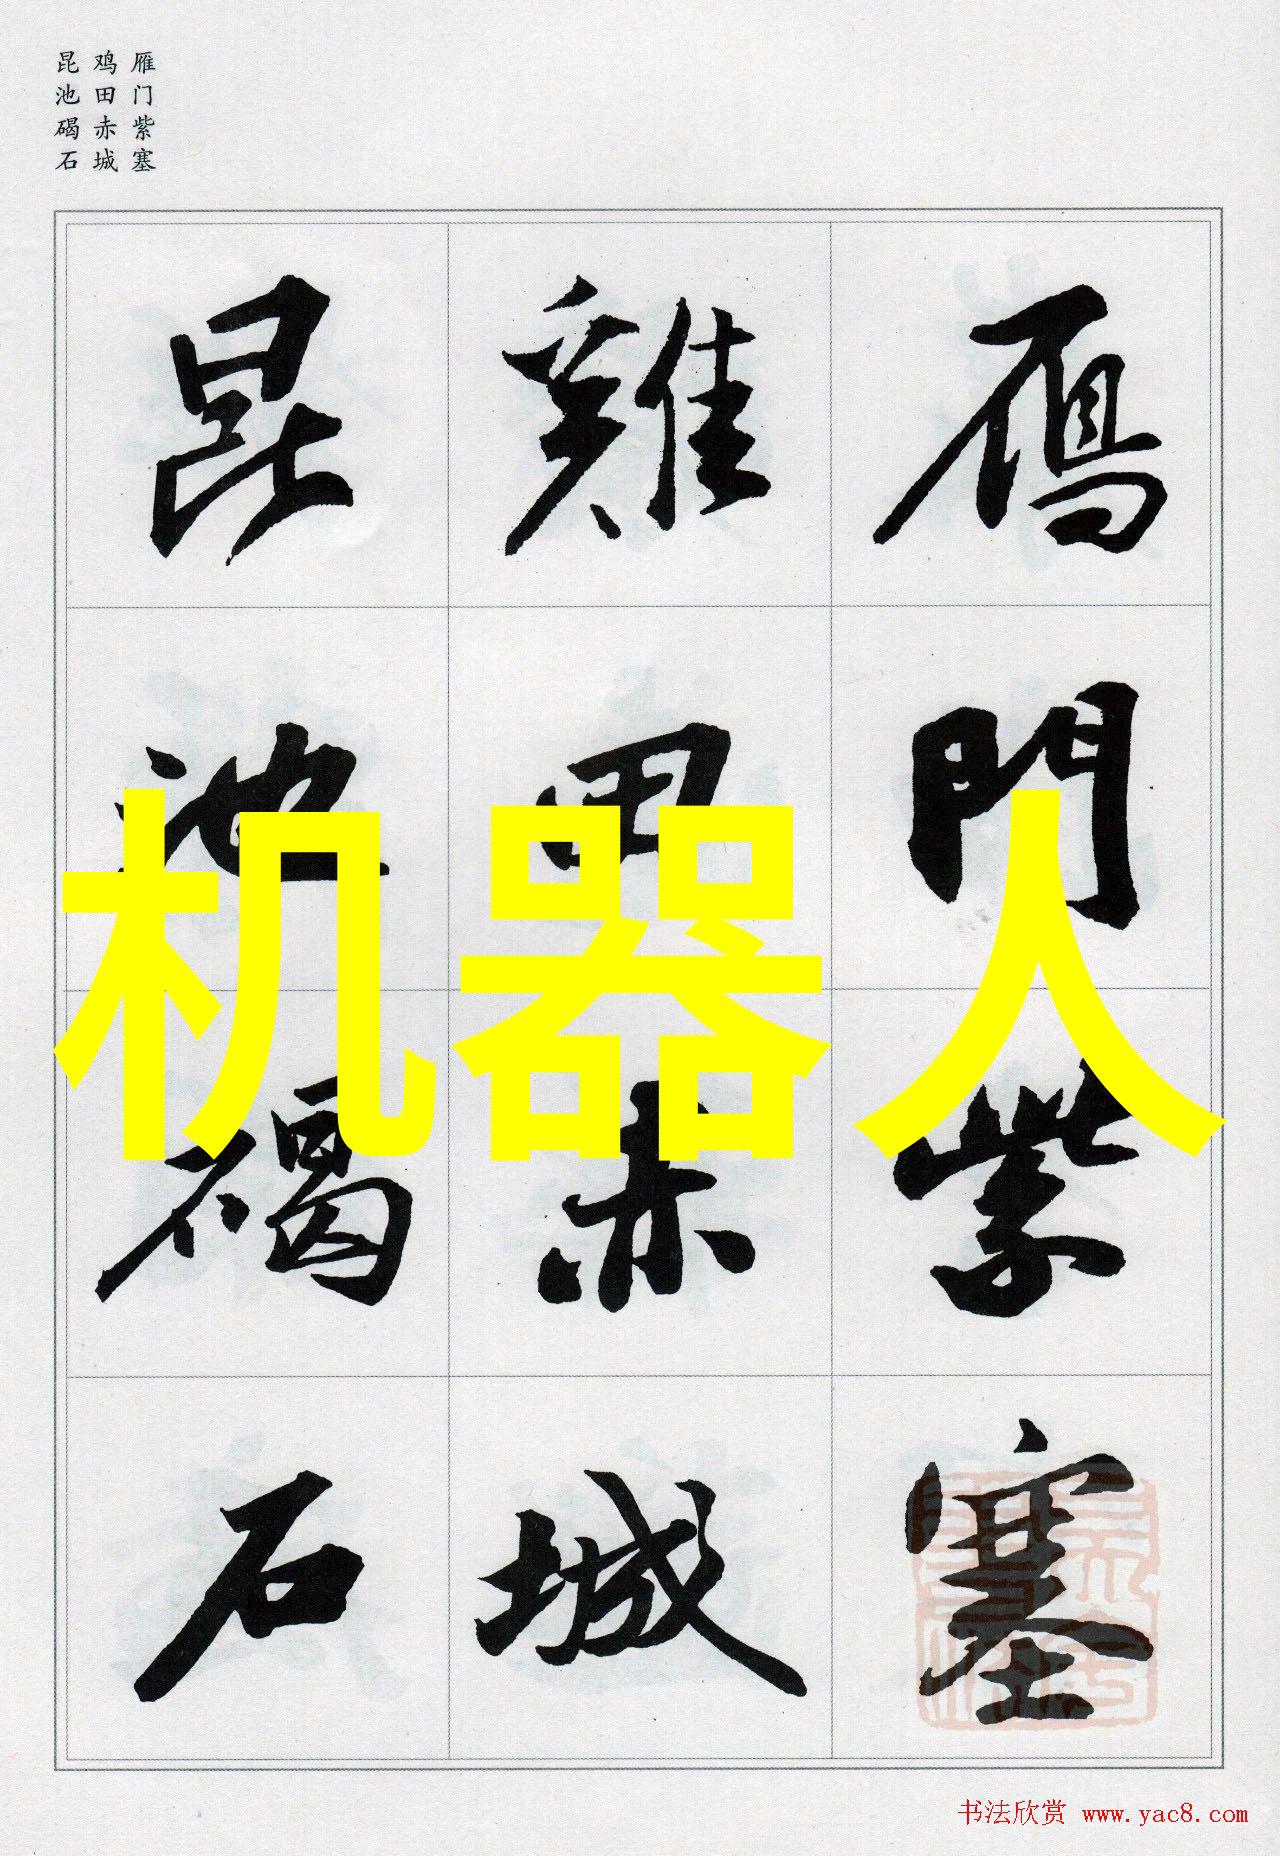 雁门紫塞
鸡田赤城
昆池碣石
鴈門紫塞
雞田赤城
昆池碣石
机器人
书法欣赏 www.yac8.com